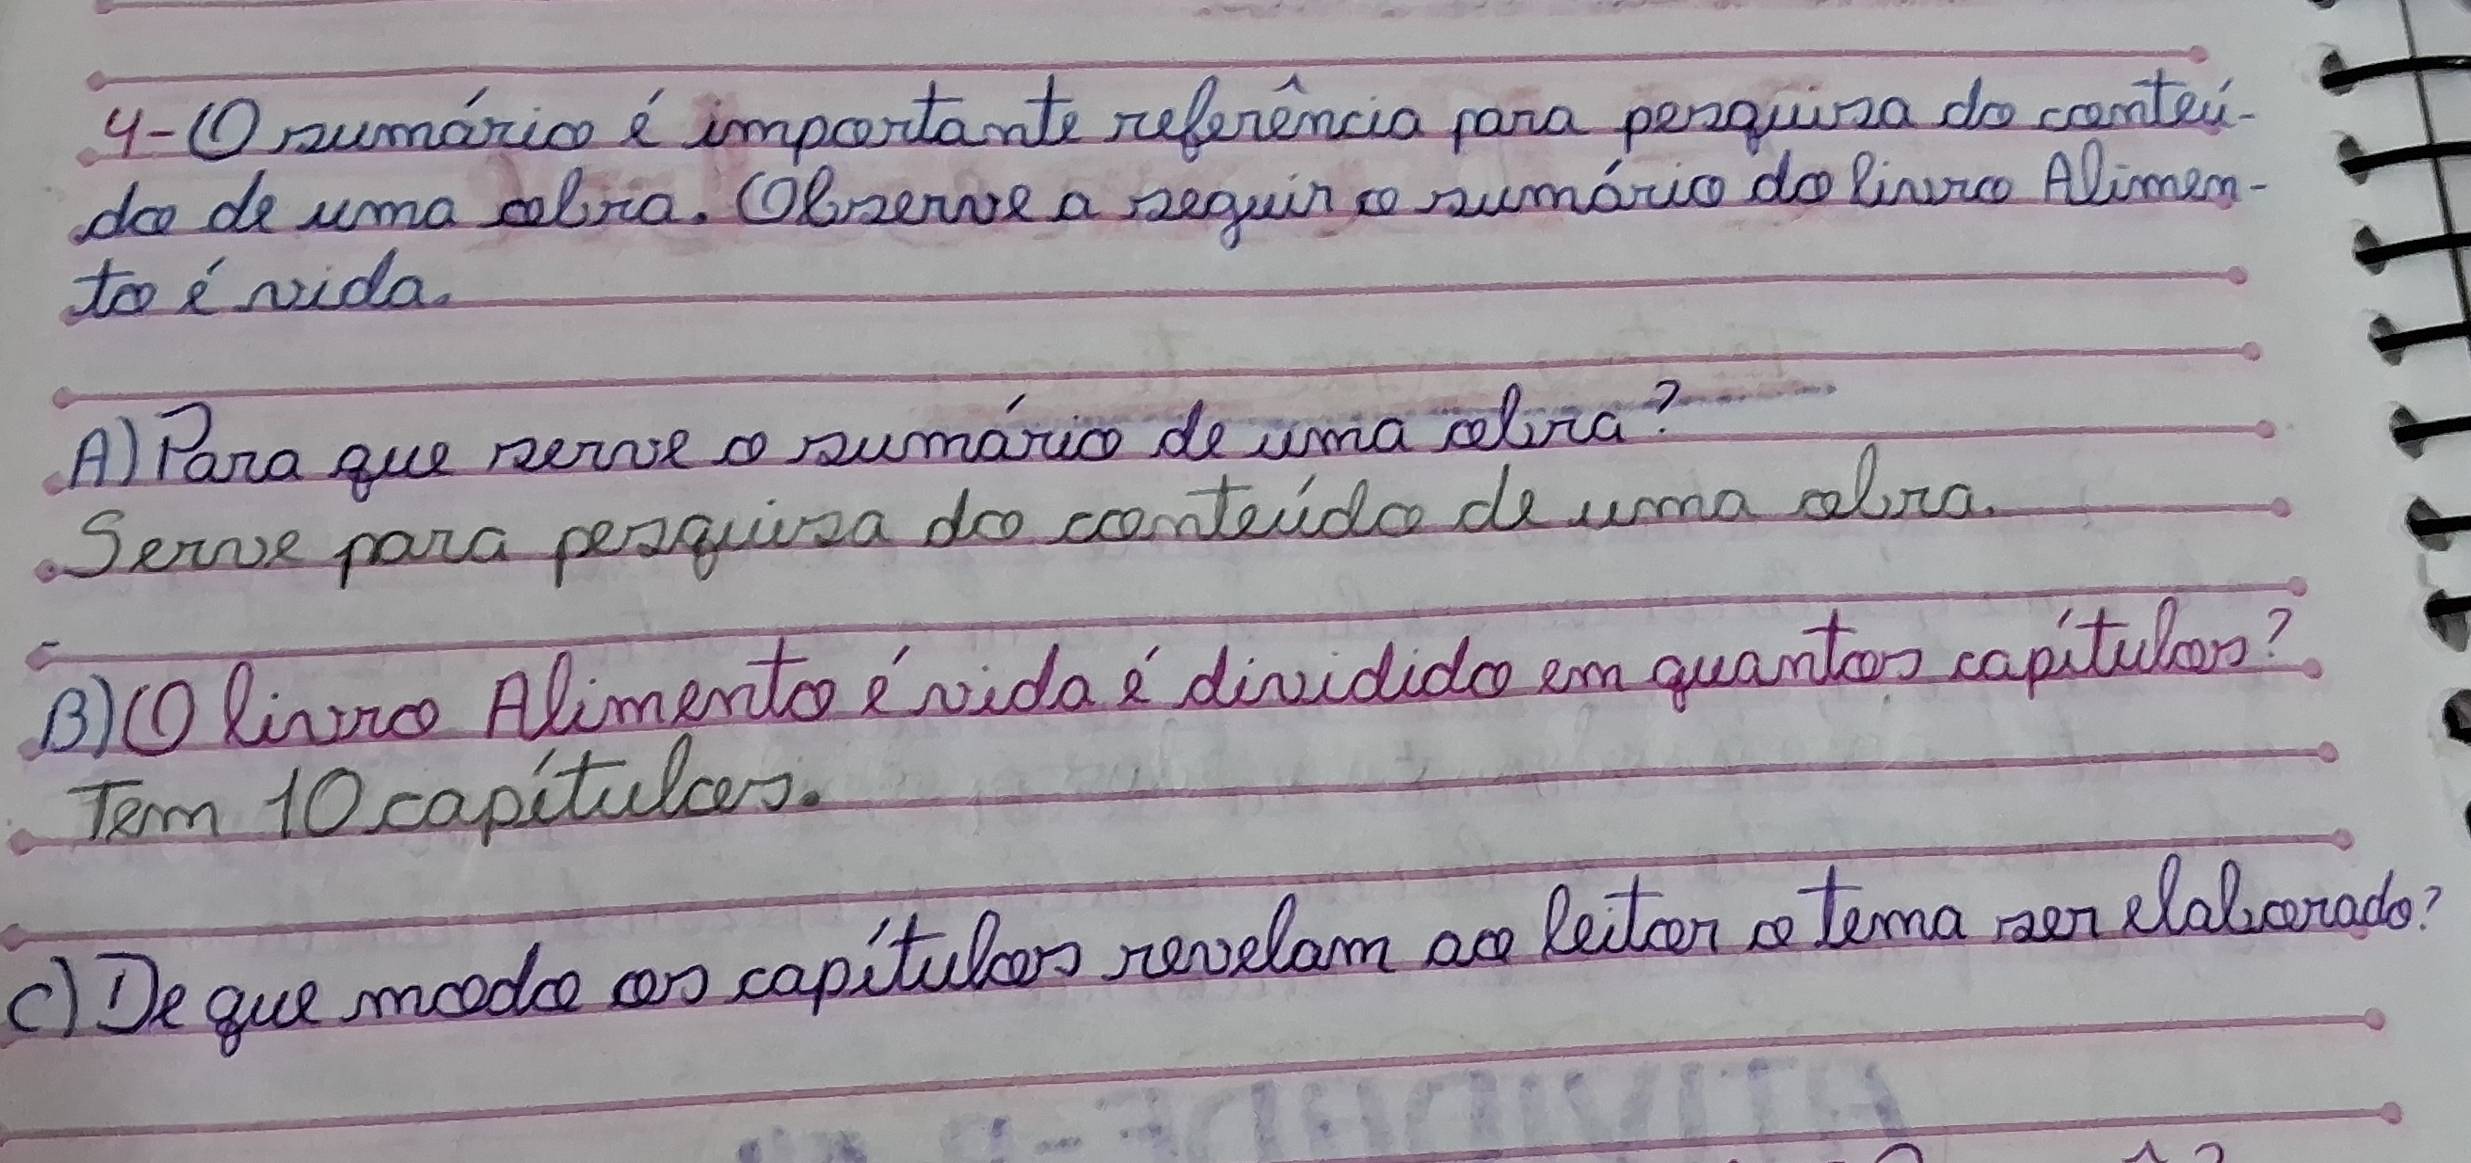 4-O sumário é importante referência para pesquisa do conteú-
do de uma obra. Observe a seguir o sumário do livro Alimen-
to é vida.
A) Para que serve o sumário de uma obra?
Serve para pesquisa do conteúdo de uma obra.
B) O livro Alimento é vida é dividido em quantos capítulos?
Tem 10 capítulos.
C) De que modo os capítulos revelam ao leitor o tema ser elaborado?